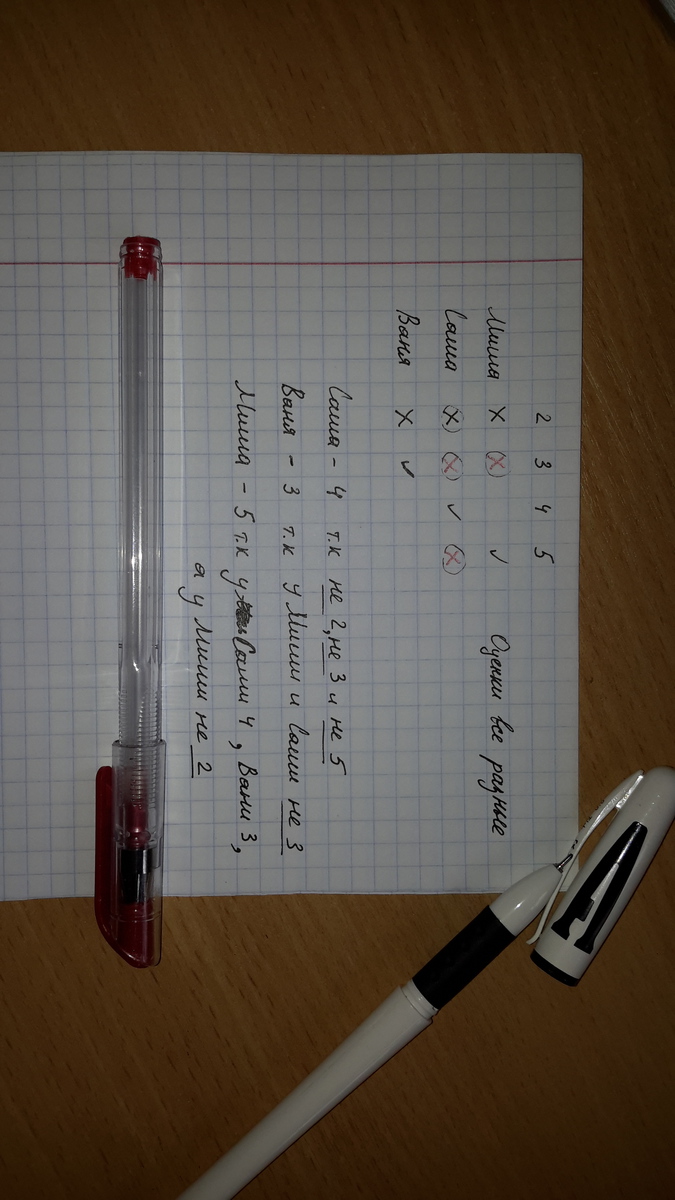 2 3 4 5
Миша X (X) ✓ Оценки все разные
Саша (X) (X) ✓ (X)
Ваня X ✓
Саша - 4 т.к не 2, не 3 и не 5
Ваня - 3 т.к у Миши и Саши не 3
Миша - 5 т.к у Саши 4, Вани 3,
а у Миши не 2